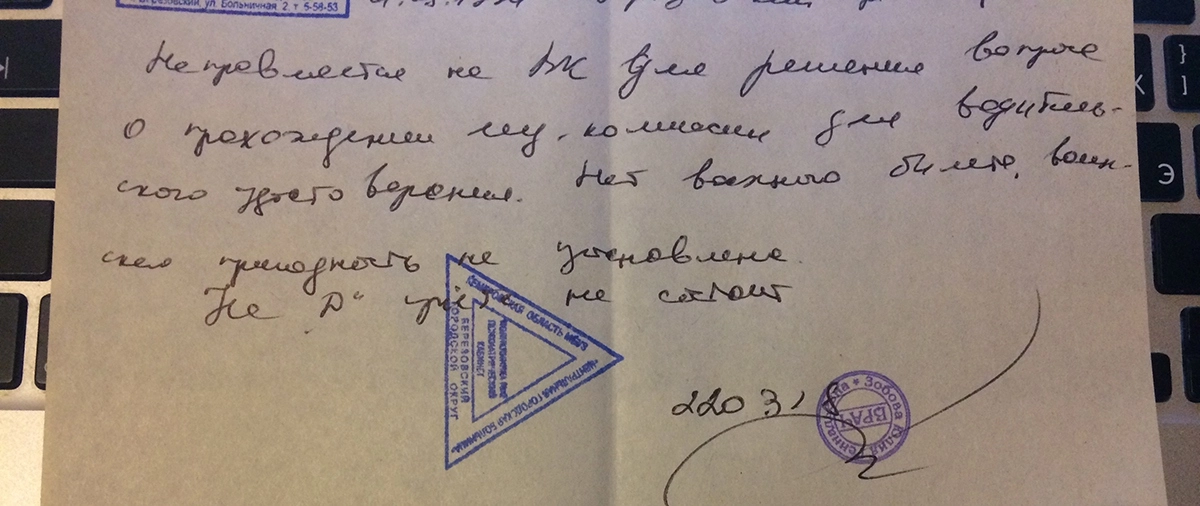 Березовский, ул. Больничная 2, т 5-58-53
Направляется на ВК для решения вопроса
о прохождении мед. комиссии для водитель-
ского удостоверения. Нет военного билета, воин-
ская пригодность не установлена.
На "D" учёте не стоит
КЕМЕРОВСКАЯ ОБЛАСТЬ МБУЗ
"ЦЕНТРАЛЬНАЯ ГОРОДСКАЯ БОЛЬНИЦА"
БЕРЕЗОВСКИЙ
ГОРОДСКОЙ ОКРУГ
ПСИХИАТРИЧЕСКИЙ
КАБИНЕТ
220318
Зобова Юлия
ВРАЧ
}
]
Э